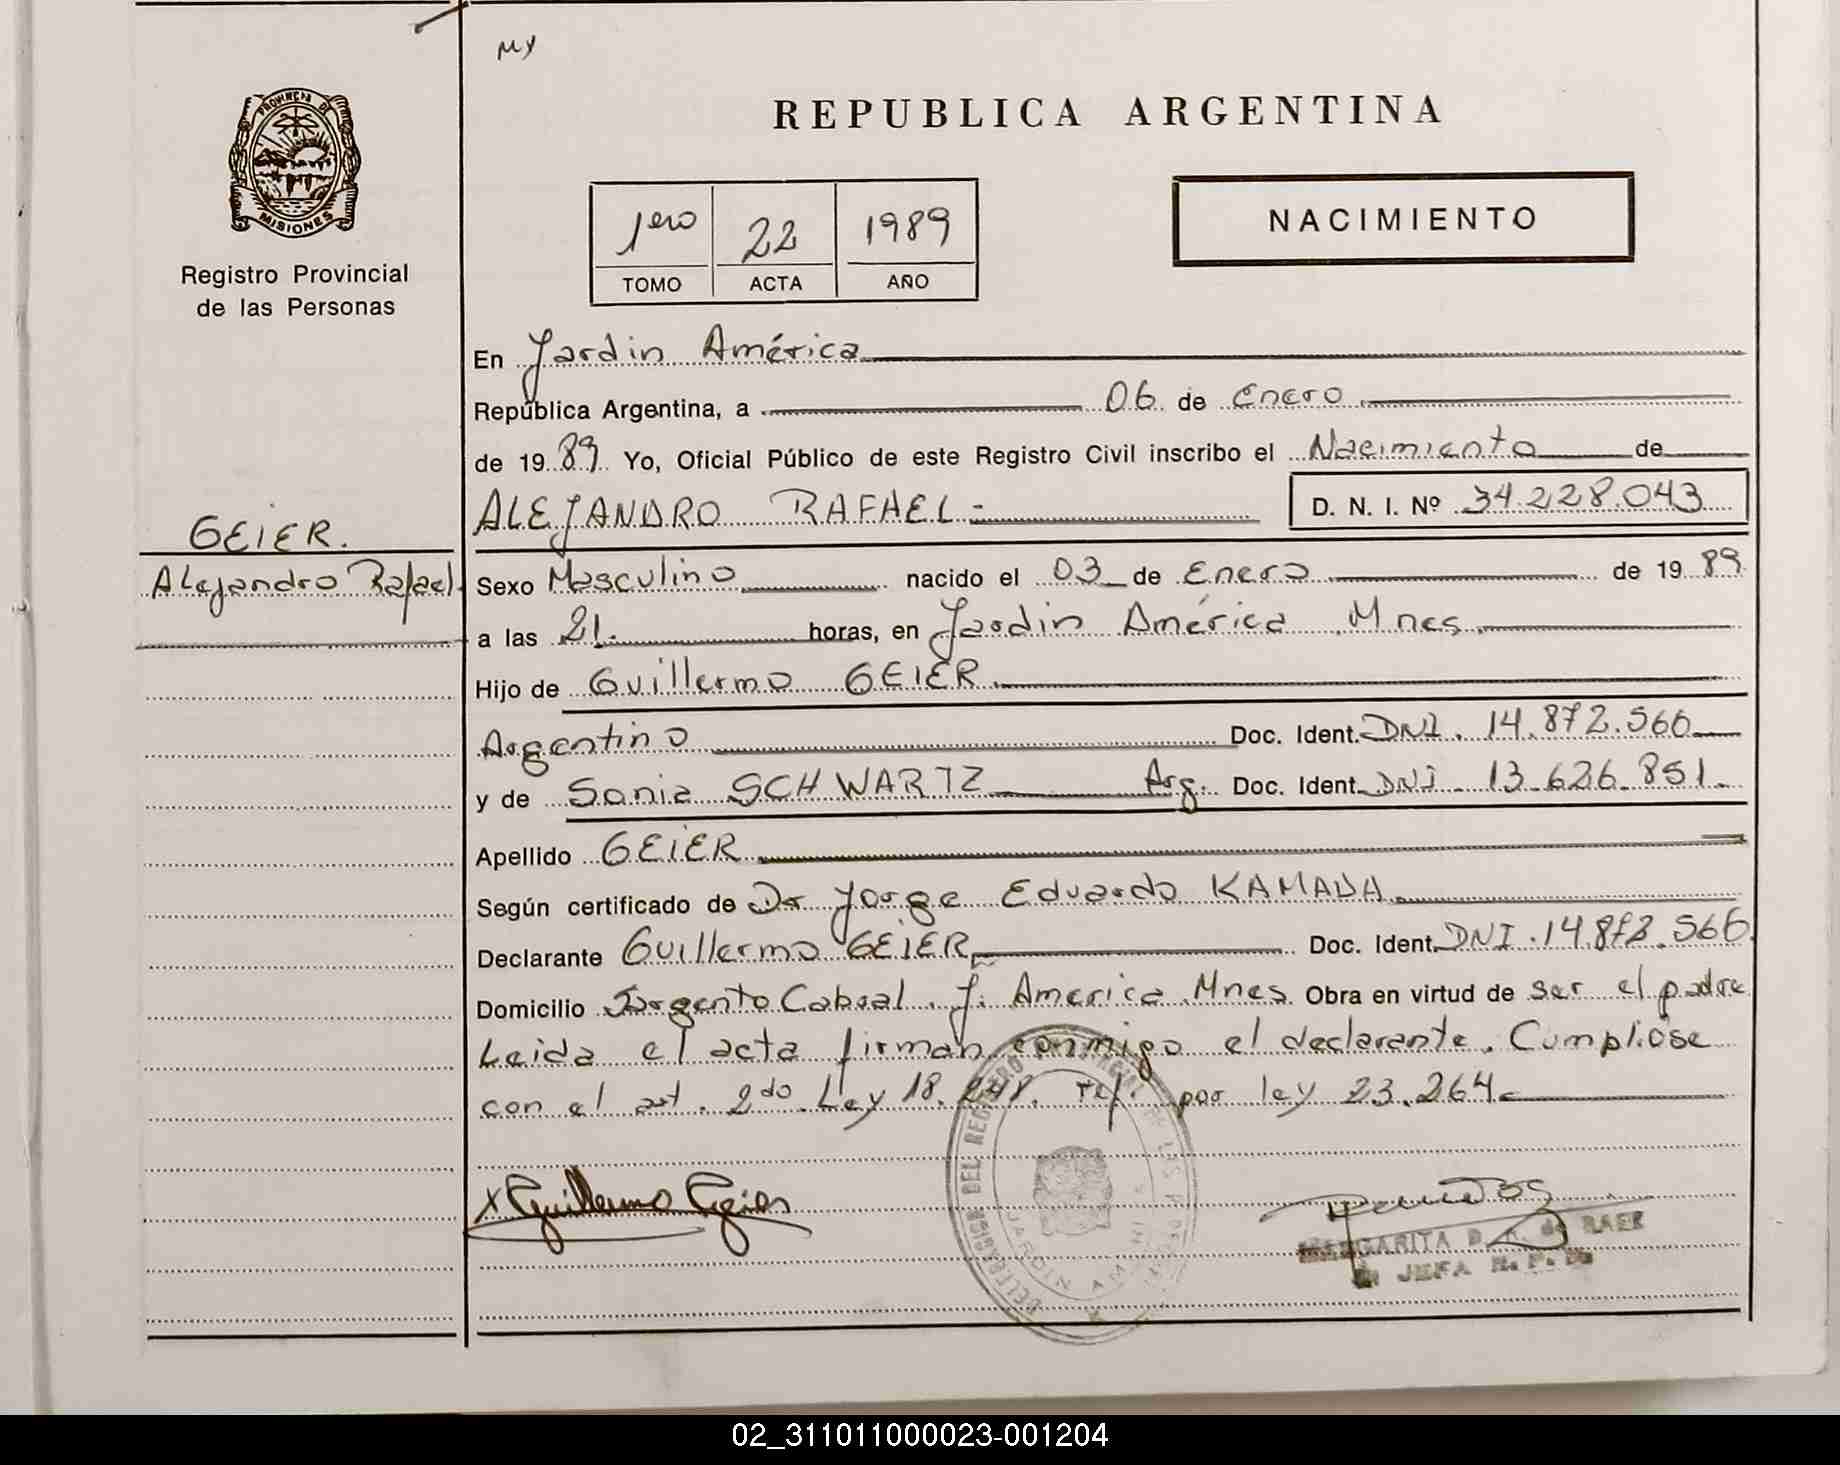 MY
PROVINCIA DE
MISIONES
Registro Provincial
de las Personas
REPUBLICA ARGENTINA
1ero 22 1989
TOMO ACTA AÑO
NACIMIENTO
En Jardin América
República Argentina, a 06 de Enero
de 1989 Yo, Oficial Público de este Registro Civil inscribo el Nacimiento de
ALEJANDRO RAFAEL.- D. N. I. Nº 34.228.043
GEIER.
Alejandro Rafael
Sexo Masculino nacido el 03 de Enero de 1989
a las 21. horas, en Jardin América Mnes.
Hijo de Guillermo GEIER.
Argentino Doc. Ident. DNI. 14.872.566
y de Sonia SCHWARTZ Arg. Doc. Ident. DNI. 13.626.851.
Apellido GEIER
Según certificado de Dr Jorge Eduardo KAMADA
Declarante Guillermo GEIER Doc. Ident. DNI. 14.872.566
Domicilio Sargento Cabral. J. America Mnes. Obra en virtud de ser el padre
Leida el acta firman conmigo el declarante. Cumpliose
con el art. 2do. Ley 18.248. ref. por ley 23.264.
x Guillermo Geier
DELEGACION DEL REGISTRO PROVINCIAL DE LAS
JARDIN AMERICA
MARGARITA D. de BAEZ
JEFA R. P.
02_311011000023-001204